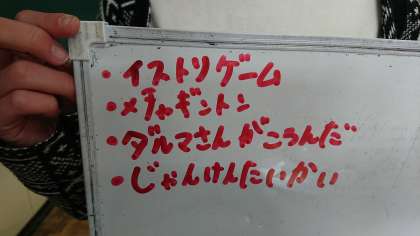 ・イストリゲーム
・メチャギントン
・ダルマさんがころんだ
・じゃんけんたいかい